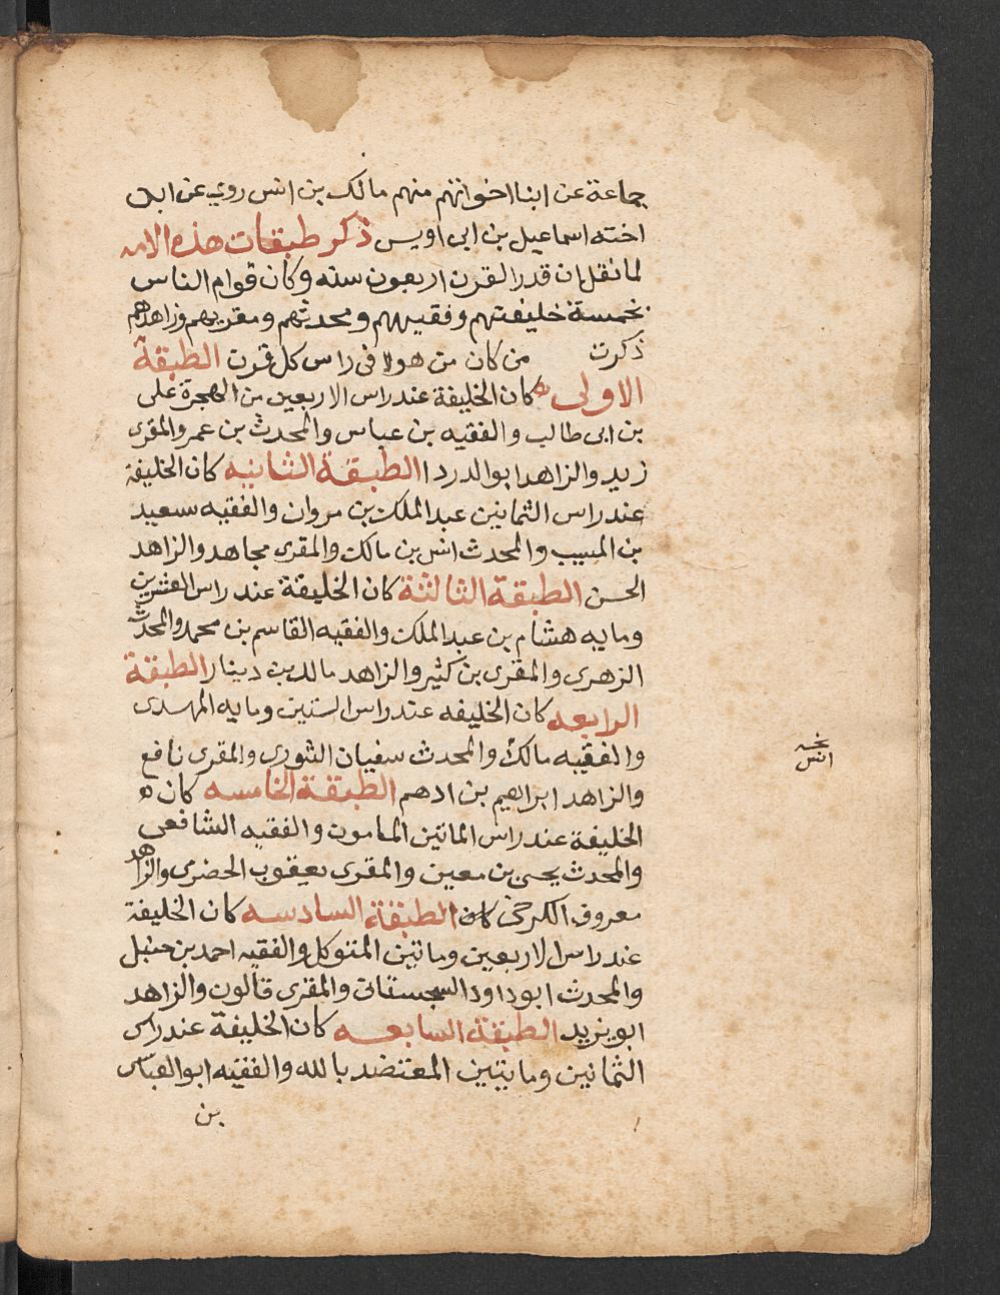 جماعة عن ابنا اخواتهم منهم مالك بن انس روي عن ابن
اخته اسماعيل بن ابى اويس ذكر طبقات هذه الامه
لما نقل ان قدر القرن اربعون سنه وكان قوام الناس
بخمسة خليفتهم وفقيههم ومحدثهم ومقريهم وزاهدهم
ذكرت من كان من هولا فى راس كل قرن الطبقة
الاولى كان الخليفة عند راس الاربعين من الهجرة على
بن ابى طالب والفقيه بن عباس والمحدث بن عمر والمقرى
زيد والزاهد ابو الدردا الطبقة الثانيه كان الخليفة
عند راس الثمانين عبد الملك بن مروان والفقيه سعيد
بن المسيب والمحدث انس بن مالك والمقرى مجاهد والزاهد
الحسن الطبقة الثالثة كان الخليفة عند راس العشرين
ومايه هشام بن عبد الملك والفقيه القاسم بن محمد والمحدث
الزهرى والمقرى بن كثير والزاهد مالك بن دينار الطبقة
الرابعه كان الخليفه عند راس الستين ومايه المهدى
والفقيه مالك والمحدث سفيان الثورى والمقرى نافع
نخه
انس
والزاهد ابراهيم بن ادهم الطبقة الخامسه كان ه
الخليفة عند راس الماتين المامون والفقيه الشافعى
والمحدث يحيى بن معين والمقرى يعقوب الحضرى والزاهد
معروف الكرخى كان الطبقة السادسه كان الخليفة
عند راس الاربعين وماتين المتوكل والفقيه احمد بن حنبل
والمحدث ابو داود السجستانى والمقرى قالون والزاهد
ابو يزيد الطبقة السابعه كان الخليفة عند راس
الثمانين ومايتين المعتضد بالله والفقيه ابو العباس
بن